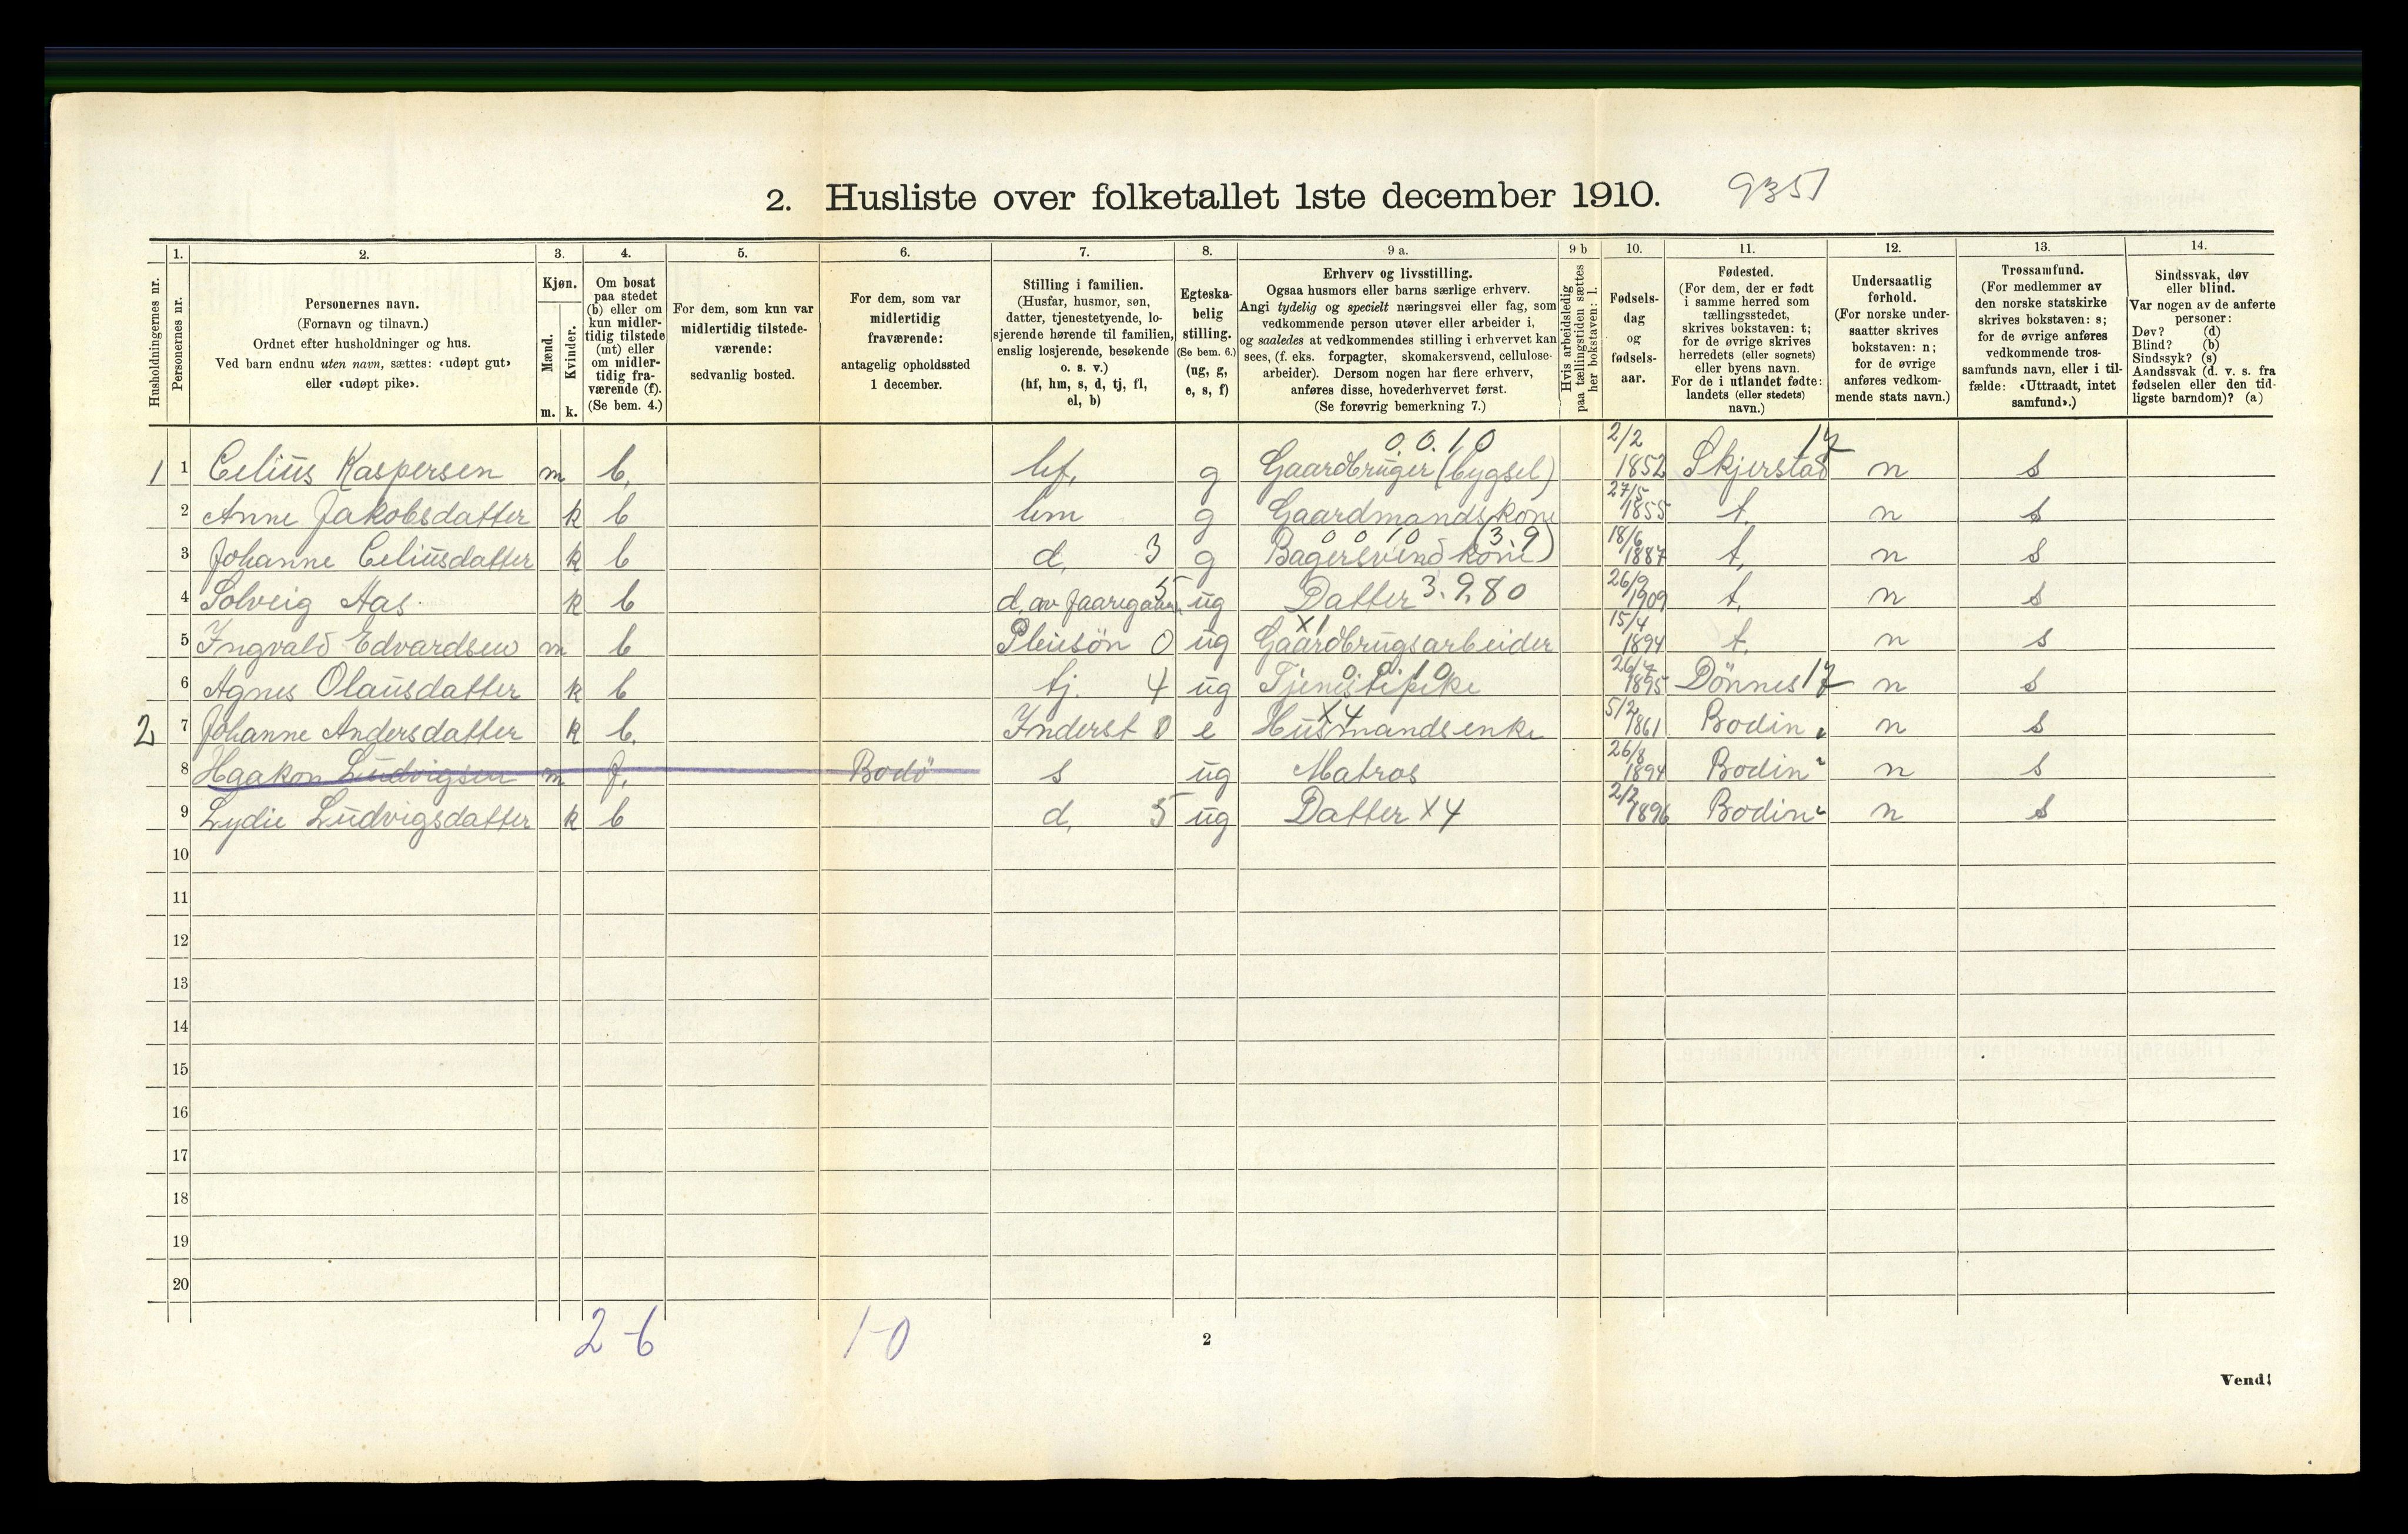 2. Husliste over folketallet 1ste december 1910. 9351
1. 2. 3. 4. 5. 6. 7. 8. 9 a. 9 b 10. 11. 12. 13. 14.
Husholdningernes nr.
Personernes nr.
Personernes navn.
(Fornavn og tilnavn.)
Ordnet efter husholdninger og hus.
Ved barn endnu uten navn, sættes: «udøpt gut»
eller «udøpt pike».
Kjøn.
Mænd.
m.
Kvinder.
k.
Om bosat
paa stedet
(b) eller om
kun midler-
tidig tilstede
(mt) eller
om midler-
tidig fra-
værende (f).
(Se bem. 4.)
For dem, som kun var
midlertidig tilstede-
værende:
sedvanlig bosted.
For dem, som var
midlertidig
fraværende:
antagelig opholdssted
1 december.
Stilling i familien.
(Husfar, husmor, søn,
datter, tjenestetyende, lo-
sjerende hørende til familien,
enslig losjerende, besøkende
o. s. v.)
(hf, hm, s, d, tj, fl,
el, b)
Egteska-
belig
stilling.
(Se bem. 6.)
(ug, g,
e, s, f)
Erhverv og livsstilling.
Ogsaa husmors eller barns særlige erhverv.
Angi tydelig og specielt næringsvei eller fag, som
vedkommende person utøver eller arbeider i,
og saaledes at vedkommendes stilling i erhvervet kan
sees, (f. eks. forpagter, skomakersvend, cellulose-
arbeider). Dersom nogen har flere erhverv,
anføres disse, hovederhvervet først.
(Se forøvrig bemerkning 7.)
Hvis arbeidsledig
paa tællingstiden sættes
her bokstaven: l.
Fødsels-
dag
og
fødsels-
aar.
Fødested.
(For dem, der er født
i samme herred som
tællingsstedet,
skrives bokstaven: t;
for de øvrige skrives
herredets (eller sognets)
eller byens navn.
For de i utlandet fødte:
landets (eller stedets)
navn.)
Undersaatlig
forhold.
(For norske under-
saatter skrives
bokstaven: n;
for de øvrige
anføres vedkom-
mende stats navn.)
Trossamfund.
(For medlemmer av
den norske statskirke
skrives bokstaven: s;
for de øvrige anføres
vedkommende tros-
samfunds navn, eller i til-
fælde: «Uttraadt, intet
samfund».)
Sindssvak, døv
eller blind.
Var nogen av de anførte
personer:
Døv? (d)
Blind? (b)
Sindssyk? (s)
Aandssvak (d. v. s. fra
fødselen eller den tid-
ligste barndom)? (a)
0.0.10 2/2 17
1 1 Celius Kaspersen m b. hf. g Gaardbruger (bygsel) 1852 Skjerstad n s
2 Anne Jakobsdatter k b hm g Gaardmandskone 27/5 1855 t. n s
0 0 10 (3.9)
3 Johanne Celiusdatter k b d. 3 g Bagersvend kone 18/6 1887 t. n s
4 Solveig Aas k b d. av 5 ug Datter 3.9.80 26/9 1909 t. n s
X1
5 Ingvald Edvardsen m b Pleiesön 0 ug Gaardbrugsarbeider 15/4 1894 t. n s
0.0.10
6 Agnes Olausdatter k b tj. 4 ug Tjenestepike 26/7 1895 Dönnes 17 n s
X4
2 7 Johanne Andersdatter k b. Inderst 0 e Husmandsenke 5/2 1861 Bodin n s
8 Haakon Ludvigsen m f. Bodö s ug Matros 26/8 1894 Bodin n s
9 Lydie Ludvigsdatter k b d. 5 ug Datter X4 2/2 1896 Bodin n s
10
11
12
13
14
15
16
17
18
19
20
2-6 1-0
2
Vend!